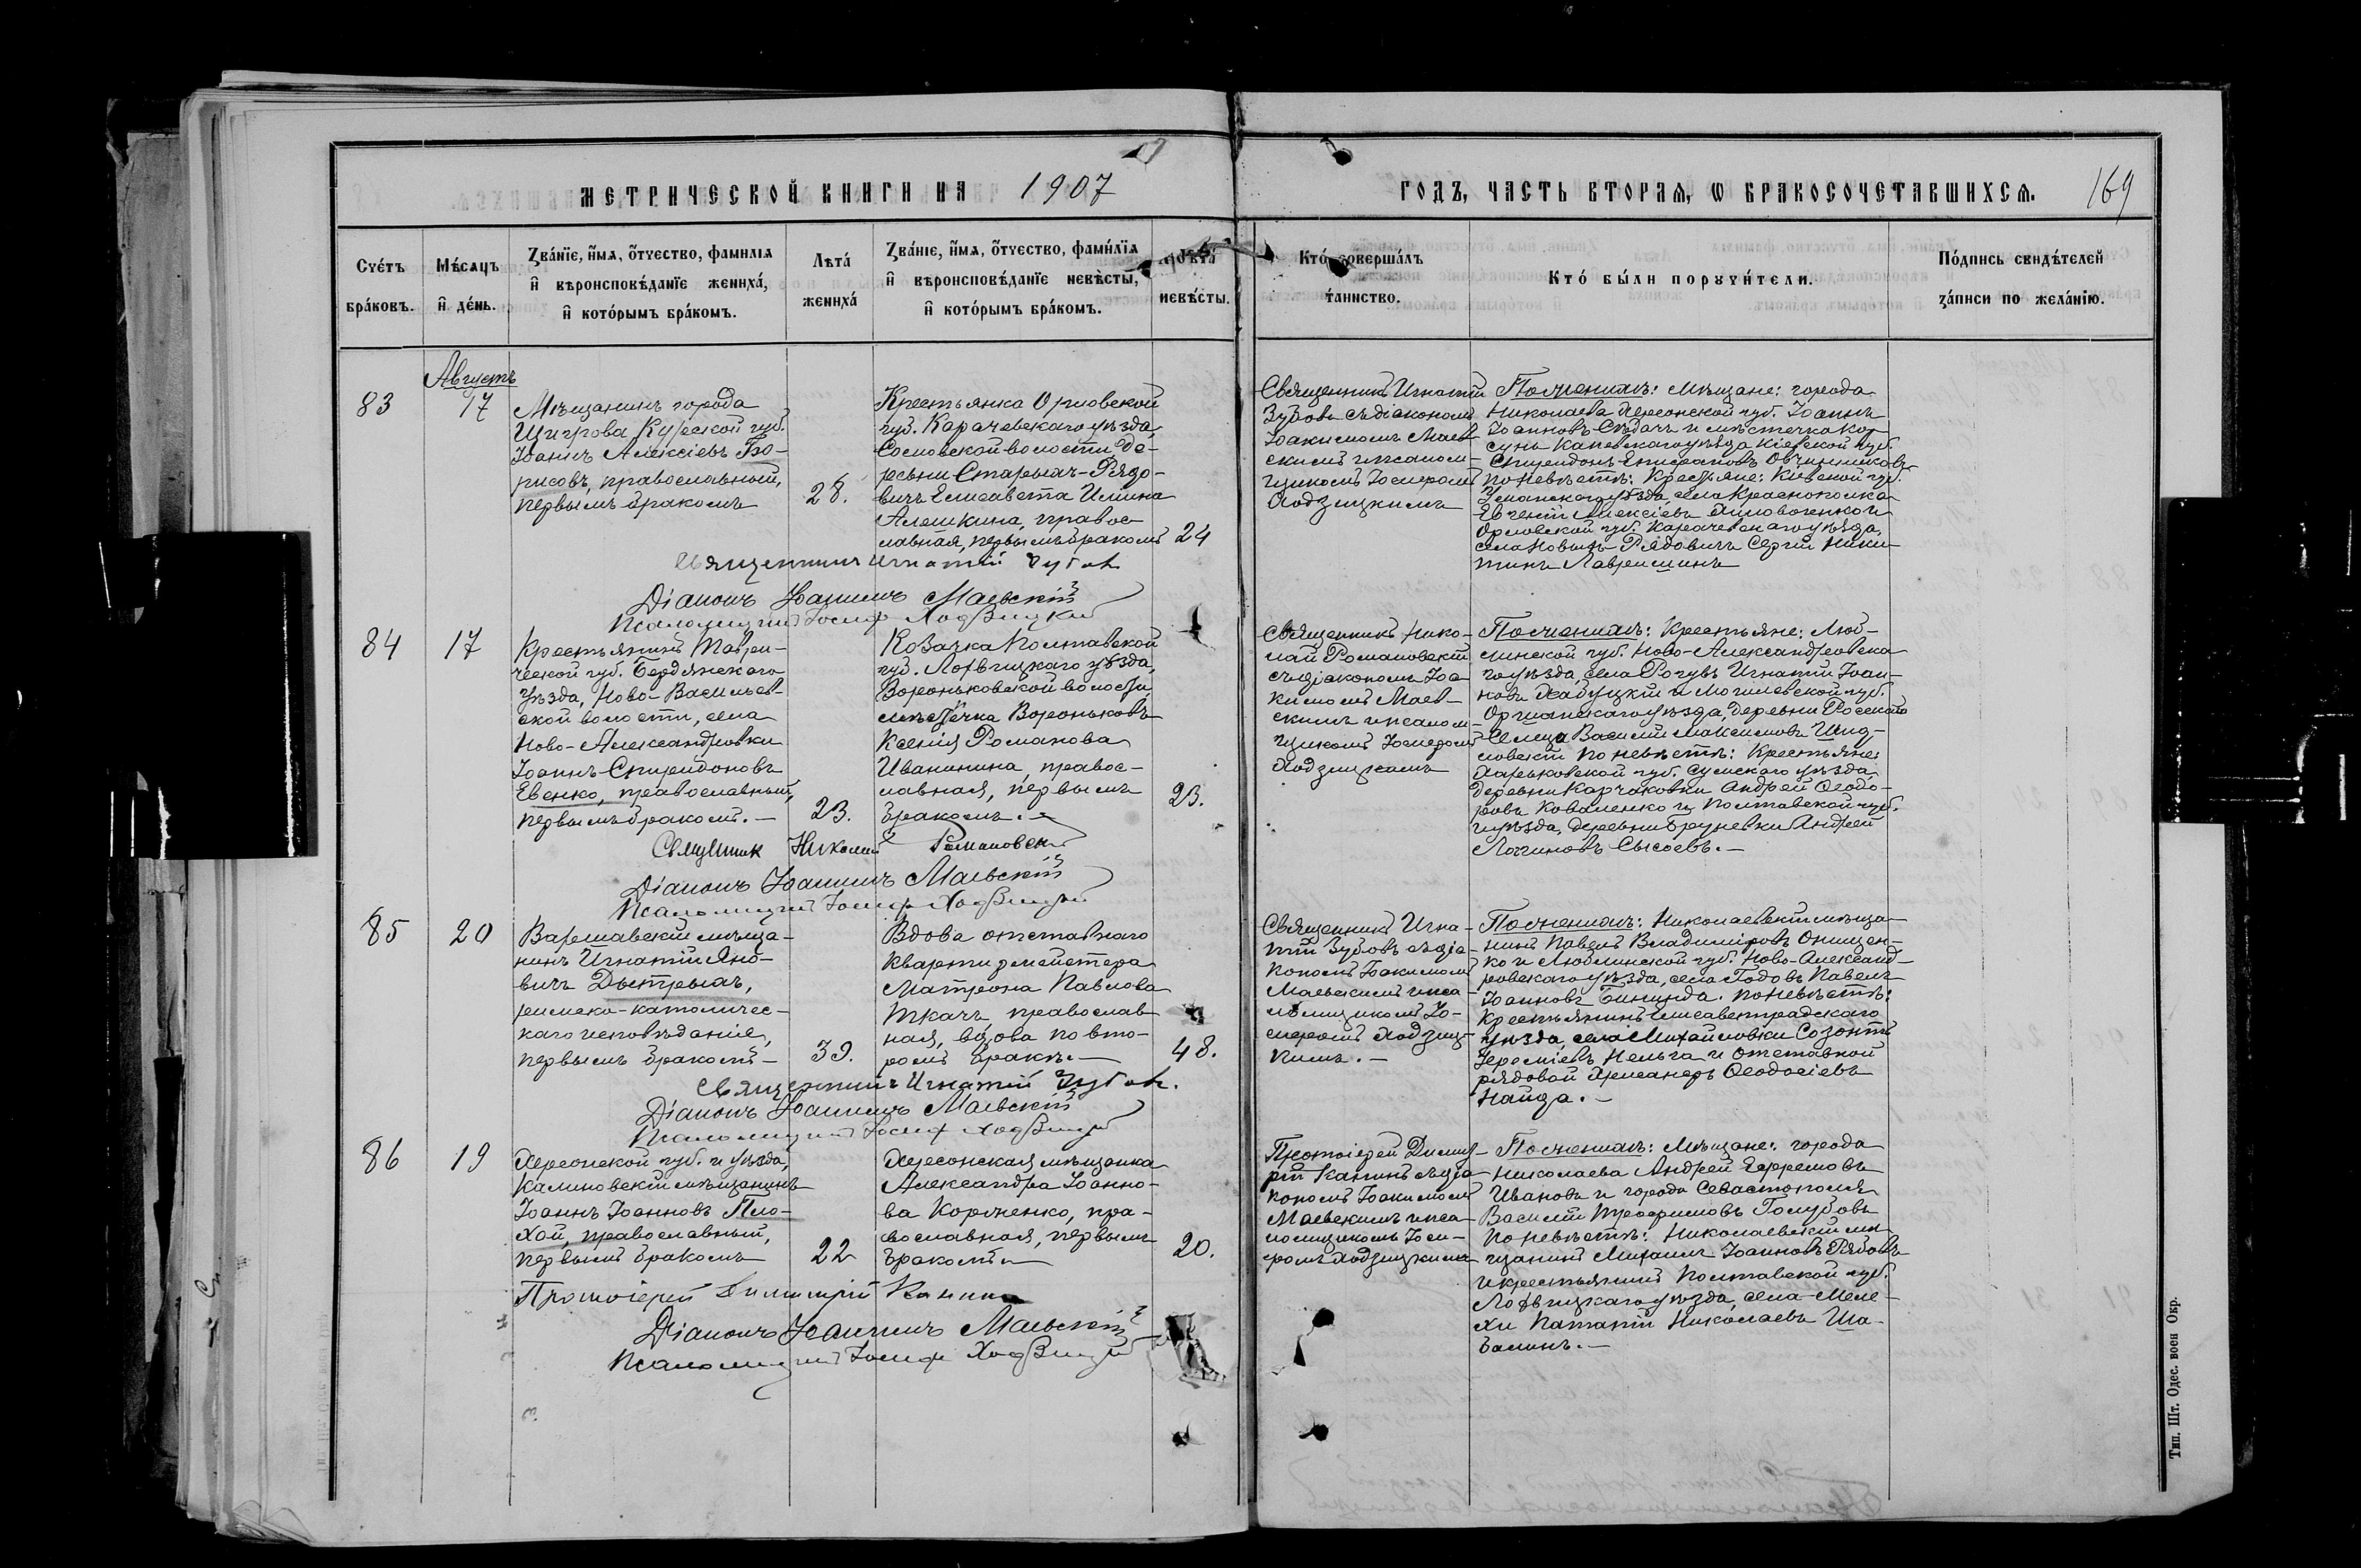 МЕТРИЧЕСКОЙ КНИГИ НА 1907
ГОДЪ, ЧАСТЬ ВТОРАЯ, Ѡ БРАКОСОЧЕТАВШИХСЯ.
169
Счетъ браковъ.
Мѣсяцъ и день.
Званіе, имя, отчество, фамилія
и вѣроисповѣданіе жениха,
и которымъ бракомъ.
Лѣта
жениха
Званіе, имя, отчество, фамилія
и вѣроисповѣданіе невѣсты,
и которымъ бракомъ.
Лѣта
невѣсты.
Кто совершалъ
таинство.
Кто были поручители.
Подпись свидѣтелей
записи по желанію.
Августъ
83
17
Мѣщанинъ города
Щигрова Курской губ.
Іоаннъ Алексіевъ Бо-
рисовъ, православный,
первымъ бракомъ
28.
Крестьянка Орловской
губ. Карачевскаго уѣзда,
волости, де-
ревни Старыхъ-Рядо-
вичъ Елисавета Ильина
Алешкина, правос-
лавная, первымъ бракомъ
24
Священникъ Игнатій
Зубовъ съ діакономъ
Іоакимомъ Маев-
скимъ и псалом-
щикомъ Іосифомъ
Ходзицкимъ
По женихѣ: Мѣщане: города
Николаева Херсонской губ. Іоаннъ
Іоанновъ и мѣстечка Кор-
сунь Каневскаго уѣзда Кіевской губ.
Спиридонъ Епифановъ Овчинниковъ
По невѣстѣ: Крестьяне: Кіевской губ.
Уманскаго уѣзда, села Краснополка
Алексіевъ и
Орловской губ. Карачевскаго уѣзда,
села Новыхъ-Рядовичъ Сергій Ники-
тинъ
Священникъ Игнатій Зубовъ
Діаконъ Іоакимъ Маевскій
Псаломщикъ Іосифъ Ходзицкій
84
17
Крестьянинъ Таври-
ческой губ. Бердянскаго
уѣзда, Ново-Васильев-
ской волости, села
Ново-Александровки
Іоаннъ Спиридоновъ
Евенко, православный,
первымъ бракомъ.
23.
Козачка Полтавской
губ. Лохвицкаго уѣзда,
Вороньковской волости,
мѣстечка Вороньковъ
Ксенія Романова
Иванинина, правос-
лавная, первымъ
бракомъ.
23.
Священникъ Нико-
лай Романовскій
съ діакономъ Іоа-
кимомъ Маев-
скимъ и псалом-
щикомъ Іосифомъ
Ходзицкимъ
По женихѣ: Крестьяне: Люб-
линской губ. Ново-Александровска-
го уѣзда, села Игнатій Іоан-
новъ и Могилевской губ.
Оршанскаго уѣзда, деревни
Василій Максимовъ
По невѣстѣ: Крестьяне:
Харьковской губ. Сумскаго уѣзда
деревни Корчаковки Андрей Ѳеодо-
ровъ Коваленко и Полтавской губ.
и уѣзда, деревни Андрей
Логиновъ Сысоевъ.
Священникъ Николай Романовскій
Діаконъ Іоакимъ Маевскій
Псаломщикъ Іосифъ Ходзицкій
85
20
Варшавскій мѣща-
нинъ Игнатій Яно-
вичъ Дыстрыхъ,
римско-католичес-
каго исповѣданіе,
первымъ бракомъ
39.
Вдова отставнаго
квартирмейстера
Матрона Павлова
Ткачъ, православ-
ная, вдова по вто-
ромъ бракѣ.
48.
Священникъ Игна-
тій Зубовъ съ діа-
кономъ Іоакимомъ
Маевскимъ и пса-
ломщикомъ Іо-
сифомъ Ходзиц-
кимъ.
По женихѣ: Николаевскій мѣща-
нинъ Павелъ Владиміровъ Онищен-
ко и Люблинской губ. Ново-Александ-
ровскаго уѣзда, села Годовъ Павелъ
Іоанновъ Бининда. По невѣстѣ:
Крестьянинъ Елисаветградскаго
уѣзда, села Михайловки Созонтъ
Іереміевъ и отставной
рядовой Ѳеодосіевъ
Найда.
Священникъ Игнатій Зубовъ.
Діаконъ Іоакимъ Маевскій
Псаломщикъ Іосифъ Ходзицкій
86
19
Херсонской губ. и уѣзда,
Калиновскій мѣщанинъ
Іоаннъ Іоанновъ Пло-
хой, православный,
первымъ бракомъ
22
Херсонская мѣщанка
Александра Іоанно-
ва Корженко, пра-
вославная, первымъ
бракомъ
20.
Протоіерей Димит-
рій Канинъ съ діа-
кономъ Іоакимомъ
Маевскимъ и пса-
ломщикомъ Іоси-
фомъ Ходзицкимъ
По женихѣ: Мѣщане: города
Николаева Андрей Ефремовъ
Ивановъ и города Севастополя
Василій Трофимовъ Голубовъ
По невѣстѣ: Николаевскій мѣ-
щанинъ Михаилъ Іоанновъ Рябовъ
и крестьянинъ Полтавской губ.
Лохвицкаго уѣзда, села Меле-
хи Ипатій Николаевъ Ша-
балинъ.
Протоіерей Димитрій Канинъ
Діаконъ Іоакимъ Маевскій
Псаломщикъ Іосифъ Ходзицкій
Тип. Шт. Одес. воен Окр.